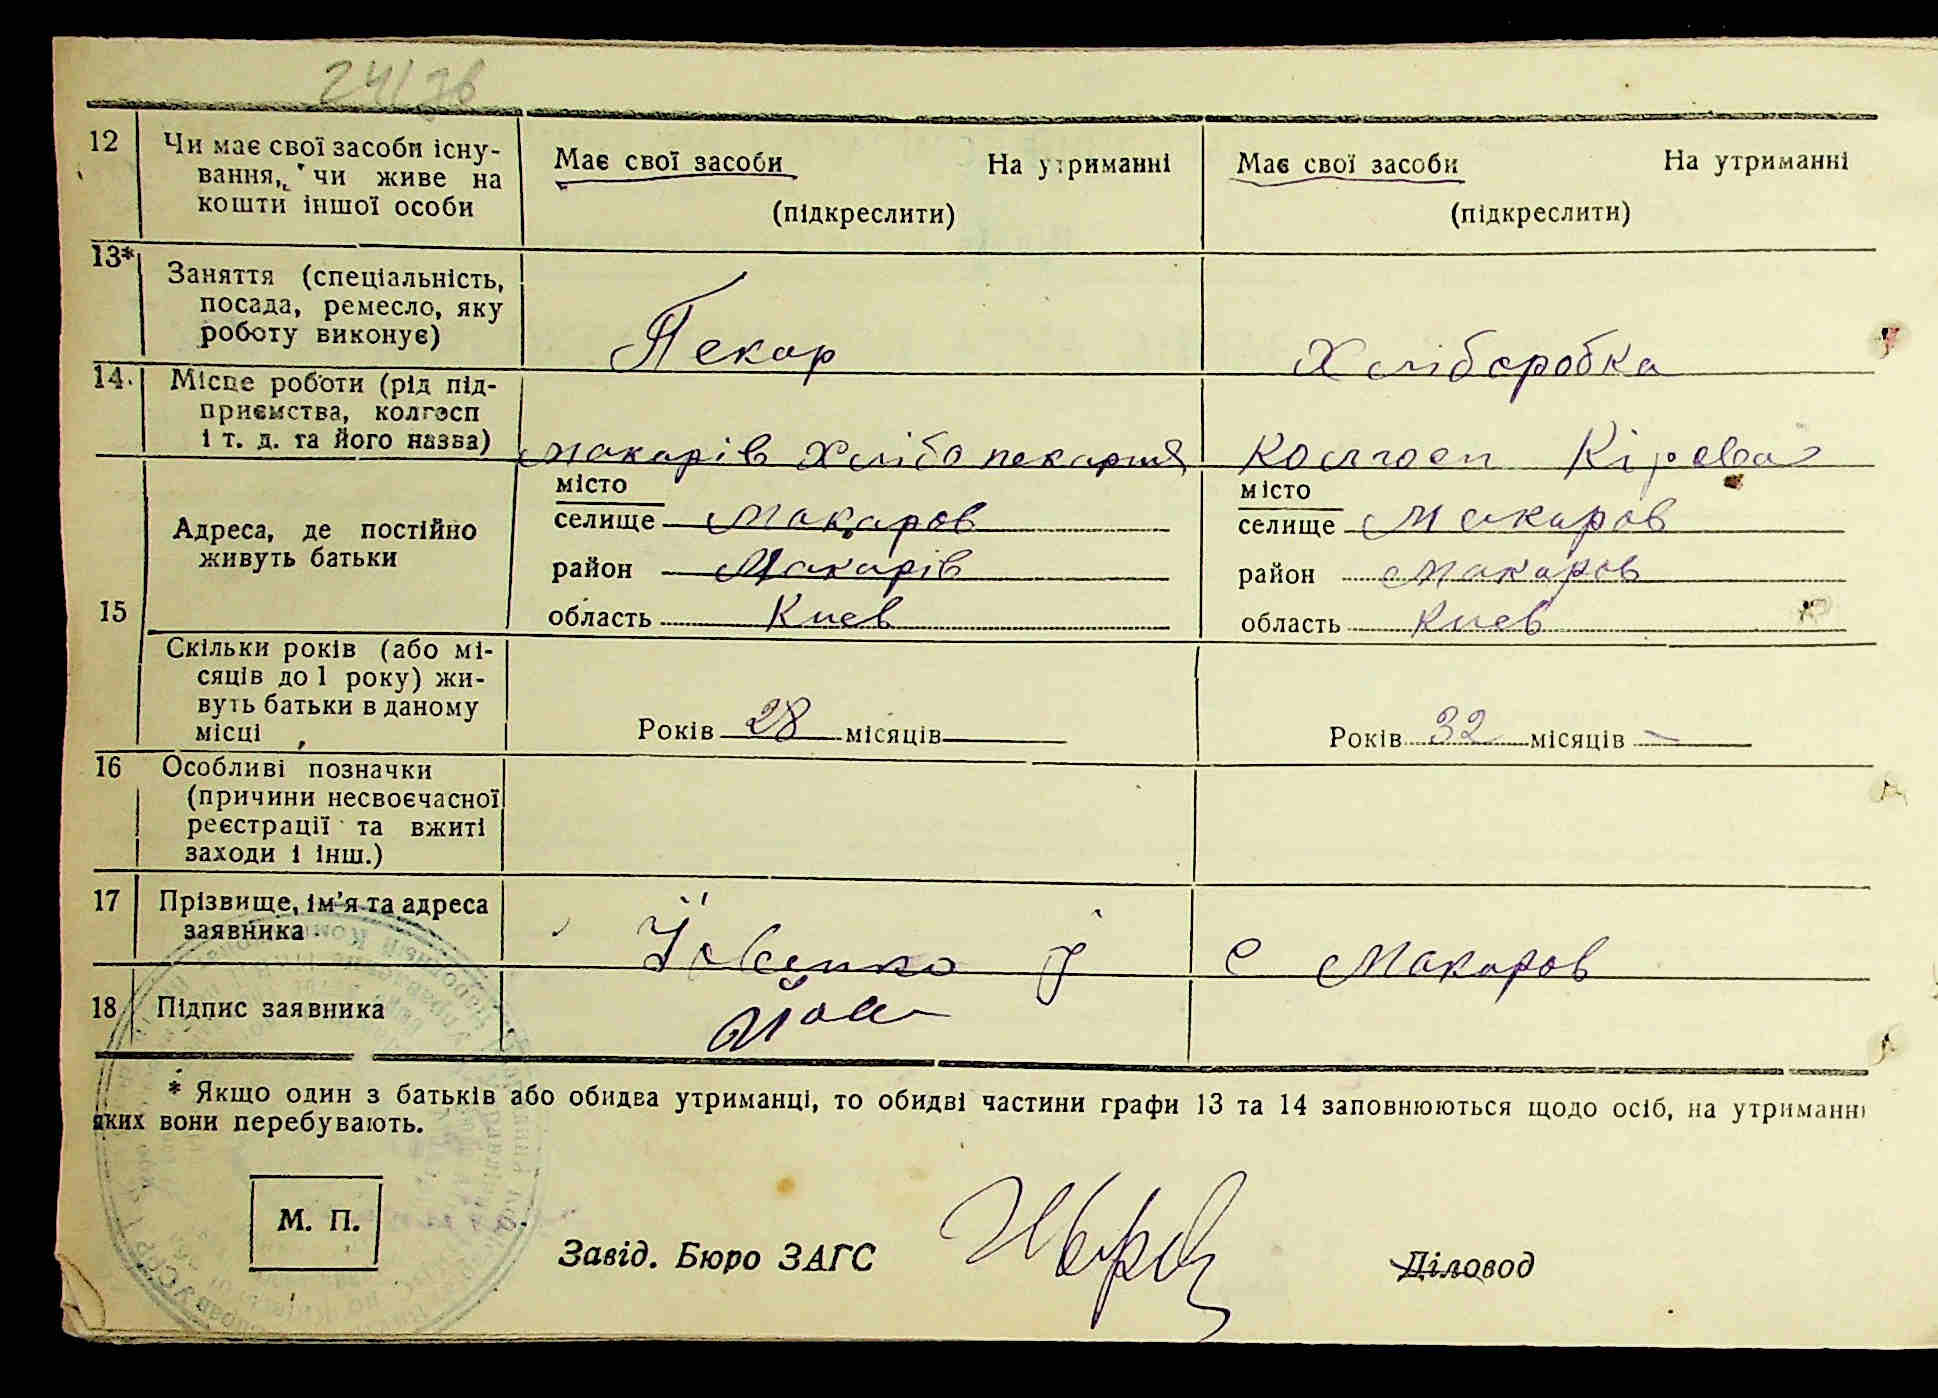 24/36
12 Чи має свої засоби існу- Має свої засоби На утриманні Має свої засоби На утриманні
вання, чи живе на
кошти іншої особи (підкреслити) (підкреслити)
13* Заняття (спеціальність,
посада, ремесло, яку
роботу виконує) Пекар Хліборобка
14. Місце роботи (рід під-
приємства, колгосп
і т. д. та його назва) Макарів Хлібо пекарня Колгосп Кірова
місто місто
Адреса, де постійно селище Макаров селище Макаров
живуть батьки район Макарів район Макаров
15 область Киев область Киев
Скільки років (або мі-
сяців до 1 року) жи-
вуть батьки в даному
місці Років 28 місяців Років 32 місяців —
16 Особливі позначки
(причини несвоєчасної
реєстрації та вжиті
заходи і інш.)
17 Прізвище, ім'я та адреса
заявника с Макаров
18 Підпис заявника
* Якщо один з батьків або обидва утриманці, то обидві частини графи 13 та 14 заповнюються щодо осіб, на утриманні
яких вони перебувають.
М. П.
Завід. Бюро ЗАГС Діловод